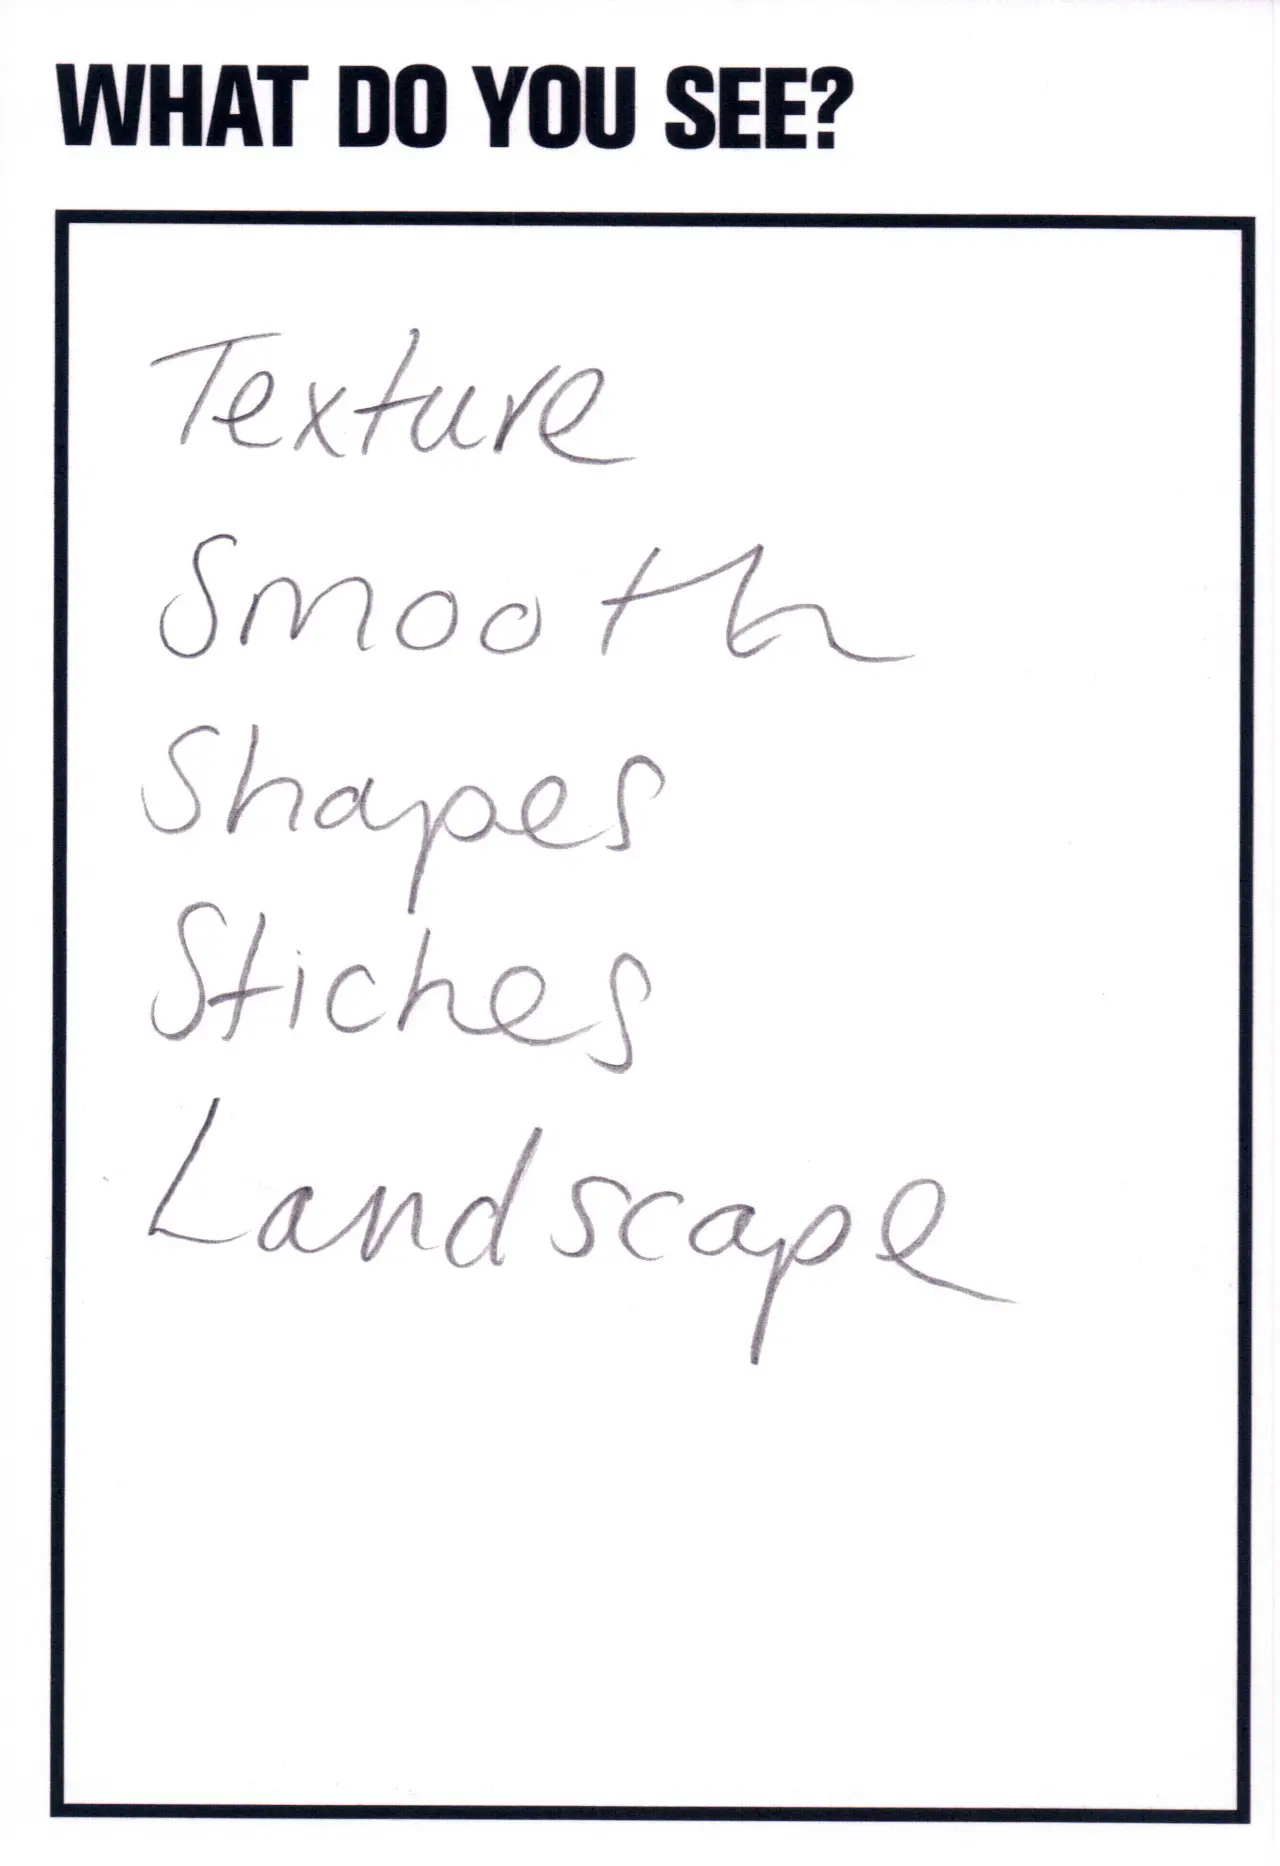 WHAT DO YOU SEE?
Texture
Smooth
Shapes
Stiches
Landscape